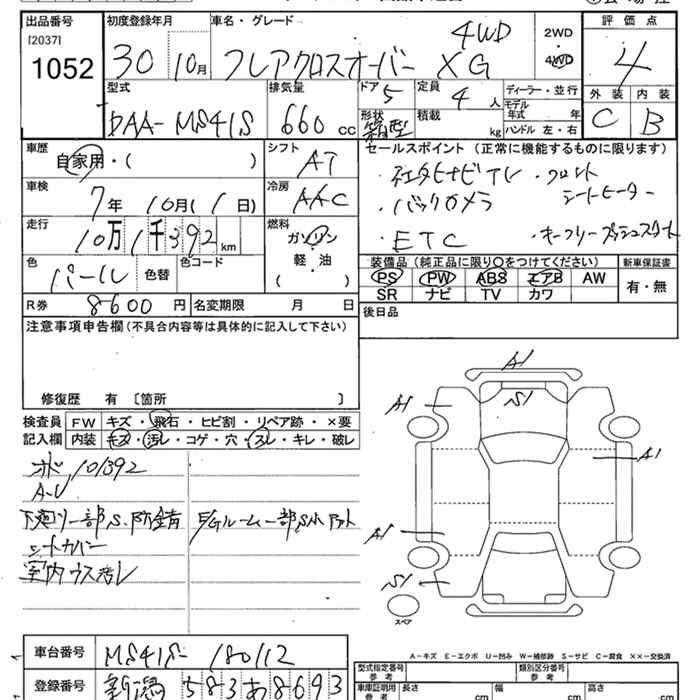 出品番号 初度登録年月 車名・グレード 評価点
[2037]
1052 30 10月 フレアクロスオーバー 4WD XG 2WD 4WD 4
型式 排気量 ドア 5 定員 4人 ディーラー・並行 外装 内装
DAA-MS41S 660cc 形状 箱型 積載 kg モデル年式 年 ハンドル 左・右 C B
車歴 自家用・( ) シフト AT セールスポイント(正常に機能するものに限ります)
車検 7年10月(1日) 冷房 AAC ・社外ナビTV ・フロントシートヒーター
走行 10万1千392km 燃料 ガソリン ・バックカメラ
軽・油 ・ETC ・キーフリープッシュスタート
色 パール 色替 色コード ( ) 装備品(純正品に限り○をつけてください) 新車保証書
PS PW ABS エアB AW 有・無
R券 8600円 名変期限 月 日 SR ナビ TV カワ
注意事項申告欄(不具合内容等は具体的に記入して下さい) 後日品
修復歴 有〔箇所 〕
検査員記入欄 FW キズ・飛石・ヒビ割・リペア跡・×要
内装 キズ・汚レ・コゲ・穴・スレ・キレ・破レ
101392
下廻リ一部S.防錆 E/Gルーム一部S
シートカバー
室内ウス汚レ
A1
S1
A1
A1
A1
S1
スペア
A-キズ E-エクボ U-凹み W-補修跡 S-サビ C-腐食 ××-交換済
車台番号 MS41S-180112 型式指定番号 参考 類別区分番号 参考
登録番号 新潟 583 あ 8693 車庫証明用 参考 長さ cm 幅 cm 高さ cm